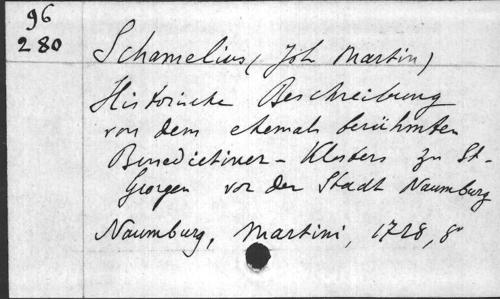 96
280
Schamelius (Joh Martin)
Historische Beschreibung
von dem ehemals berühmten
Benedictiner-Klosters zu St-
Georgen vor der Stadt Naumburg
Naumburg, Martini, 1728, 8°